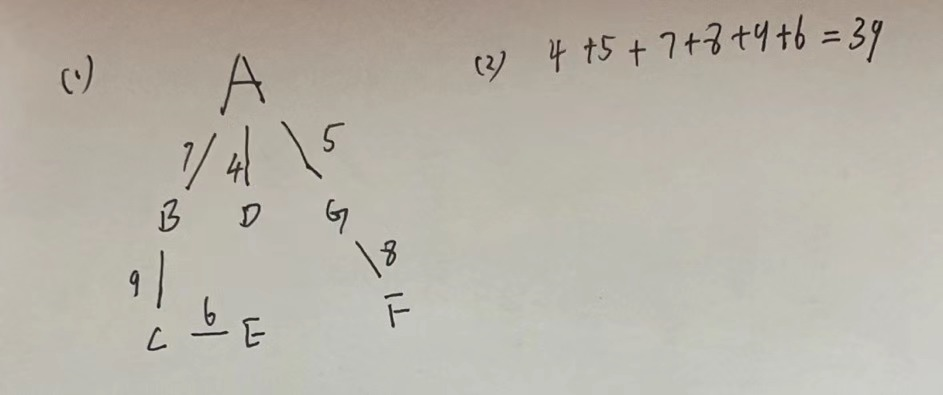 (1)
A
7 4 5
B D G
9 8
C 6 E F
(2) 4+5+7+8+9+6=39